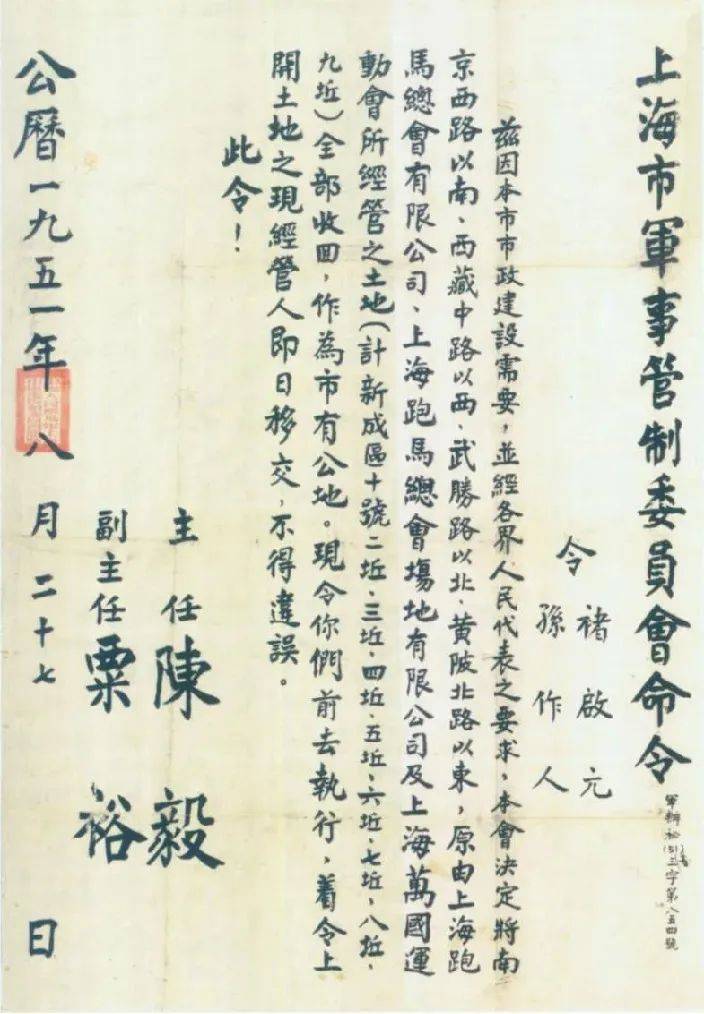 上海市軍事管制委員會命令
軍辦秘(51)三字第八五四號
令
褚啟元
孫作人
茲因本市市政建設需要，並經各界人民代表之要求，本會決定將南
京西路以南、西藏中路以西、武勝路以北、黃陂北路以東，原由上海跑
馬總會有限公司、上海跑馬總會場地有限公司及上海萬國運
動會所經管之土地（計新成區十號二坵、三坵、四坵、五坵、六坵、七坵、八坵、
九坵）全部收回，作為市有公地。現令你們前去執行，着令上
開土地之現經管人即日移交，不得違誤。
此令！
主任 陳毅
副主任 粟裕
公曆一九五一年八月二十七日